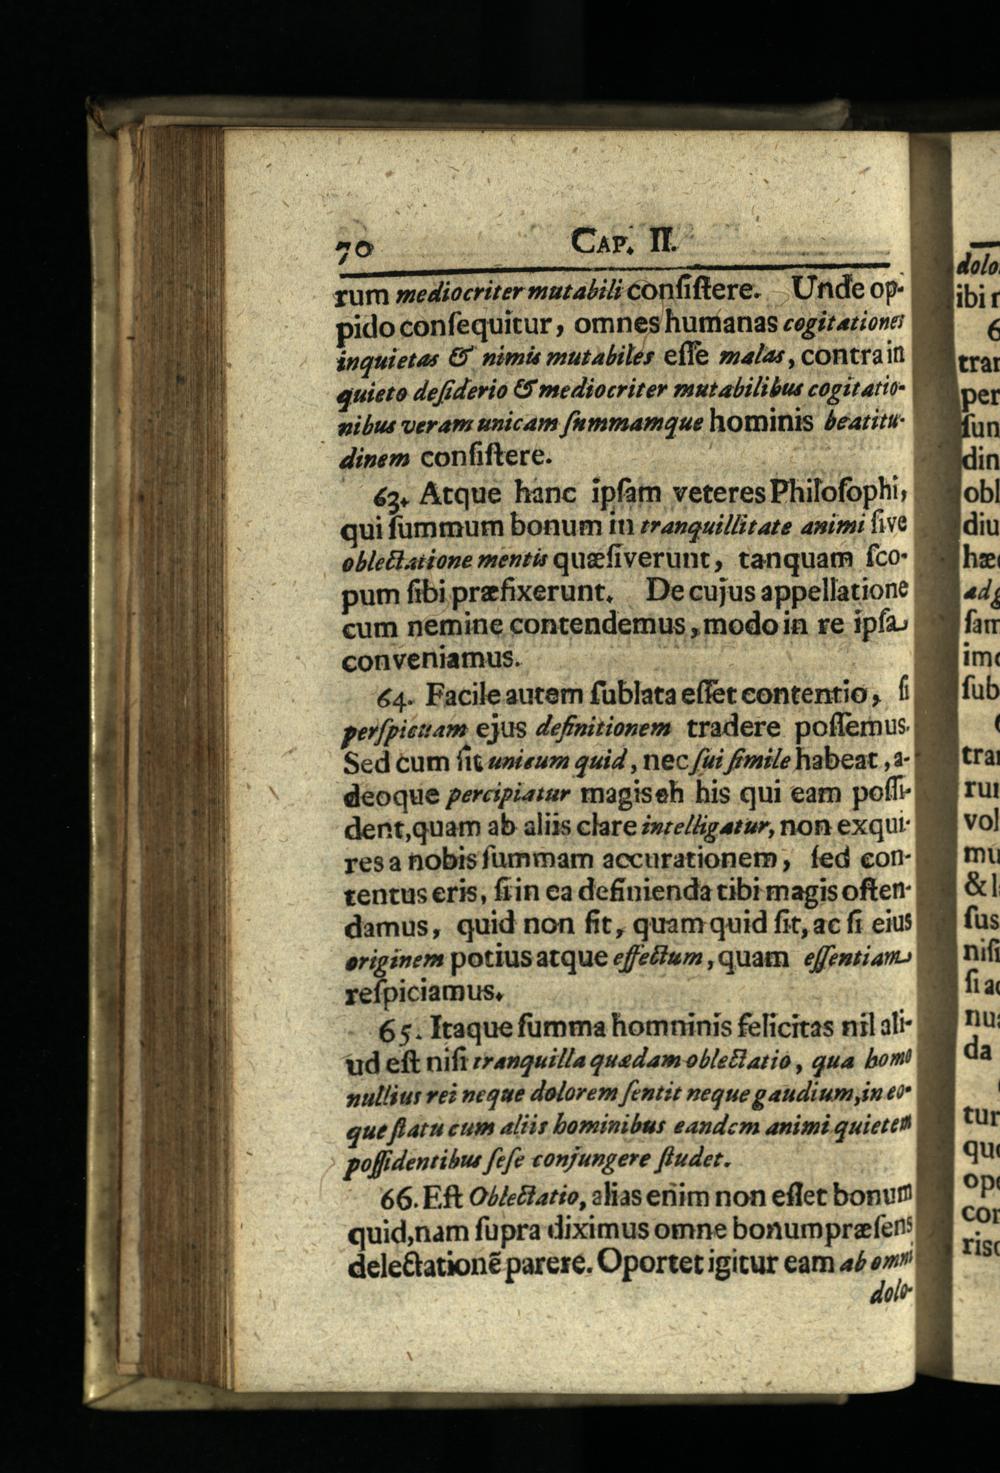 70 CAP. II.
rum mediocriter mutabili conſiſtere. Unde op-
pido conſequitur, omnes humanas cogitationes
inquietas & nimis mutabiles eſſe malas, contra in
quieto deſiderio & mediocriter mutabilibus cogitatio-
nibus veram unicam ſummamque hominis beatitu-
dinem conſiſtere.
63. Atque hanc ipſam veteres Philoſophi,
qui ſummum bonum in tranquillitate animi ſive
oblectatione mentis quæſiverunt, tanquam ſco-
pum ſibi præfixerunt. De cujus appellatione
cum nemine contendemus, modo in re ipſa
conveniamus.
64. Facile autem ſublata eſſet contentio, ſi
perſpicuam ejus definitionem tradere poſſemus.
Sed cum ſit unicum quid, nec ſui ſimile habeat, a-
deoque percipiatur magis eh his qui eam poſſi-
dent, quam ab aliis clare intelligatur, non exqui-
res a nobis ſummam accurationem, ſed con-
tentus eris, ſi in ea definienda tibi magis oſten-
damus, quid non ſit, quam quid ſit, ac ſi eius
originem potius atque effectum, quam eſſentiam
reſpiciamus.
65. Itaque ſumma homninis felicitas nil ali-
ud eſt niſi tranquilla quædam oblectatio, qua homo
nullius rei neque dolorem ſentit neque gaudium, in eo-
que ſtatu cum aliis hominibus eandem animi quietem
poſſidentibus ſeſe conjungere ſtudet.
66. Eſt Oblectatio, alias enim non eſſet bonum
quid, nam ſupra diximus omne bonum præſens
delectationẽ parere. Oportet igitur eam ab omni
dolo-
dolo.
ibi
6
tran
per
ſun
din
obl
diu
hæc
adg
ſam
imo
ſub
tran
run
vol
mu
& l
ſus
niſi
ſi ac
nua
da
tur
quo
ope
con
riſc